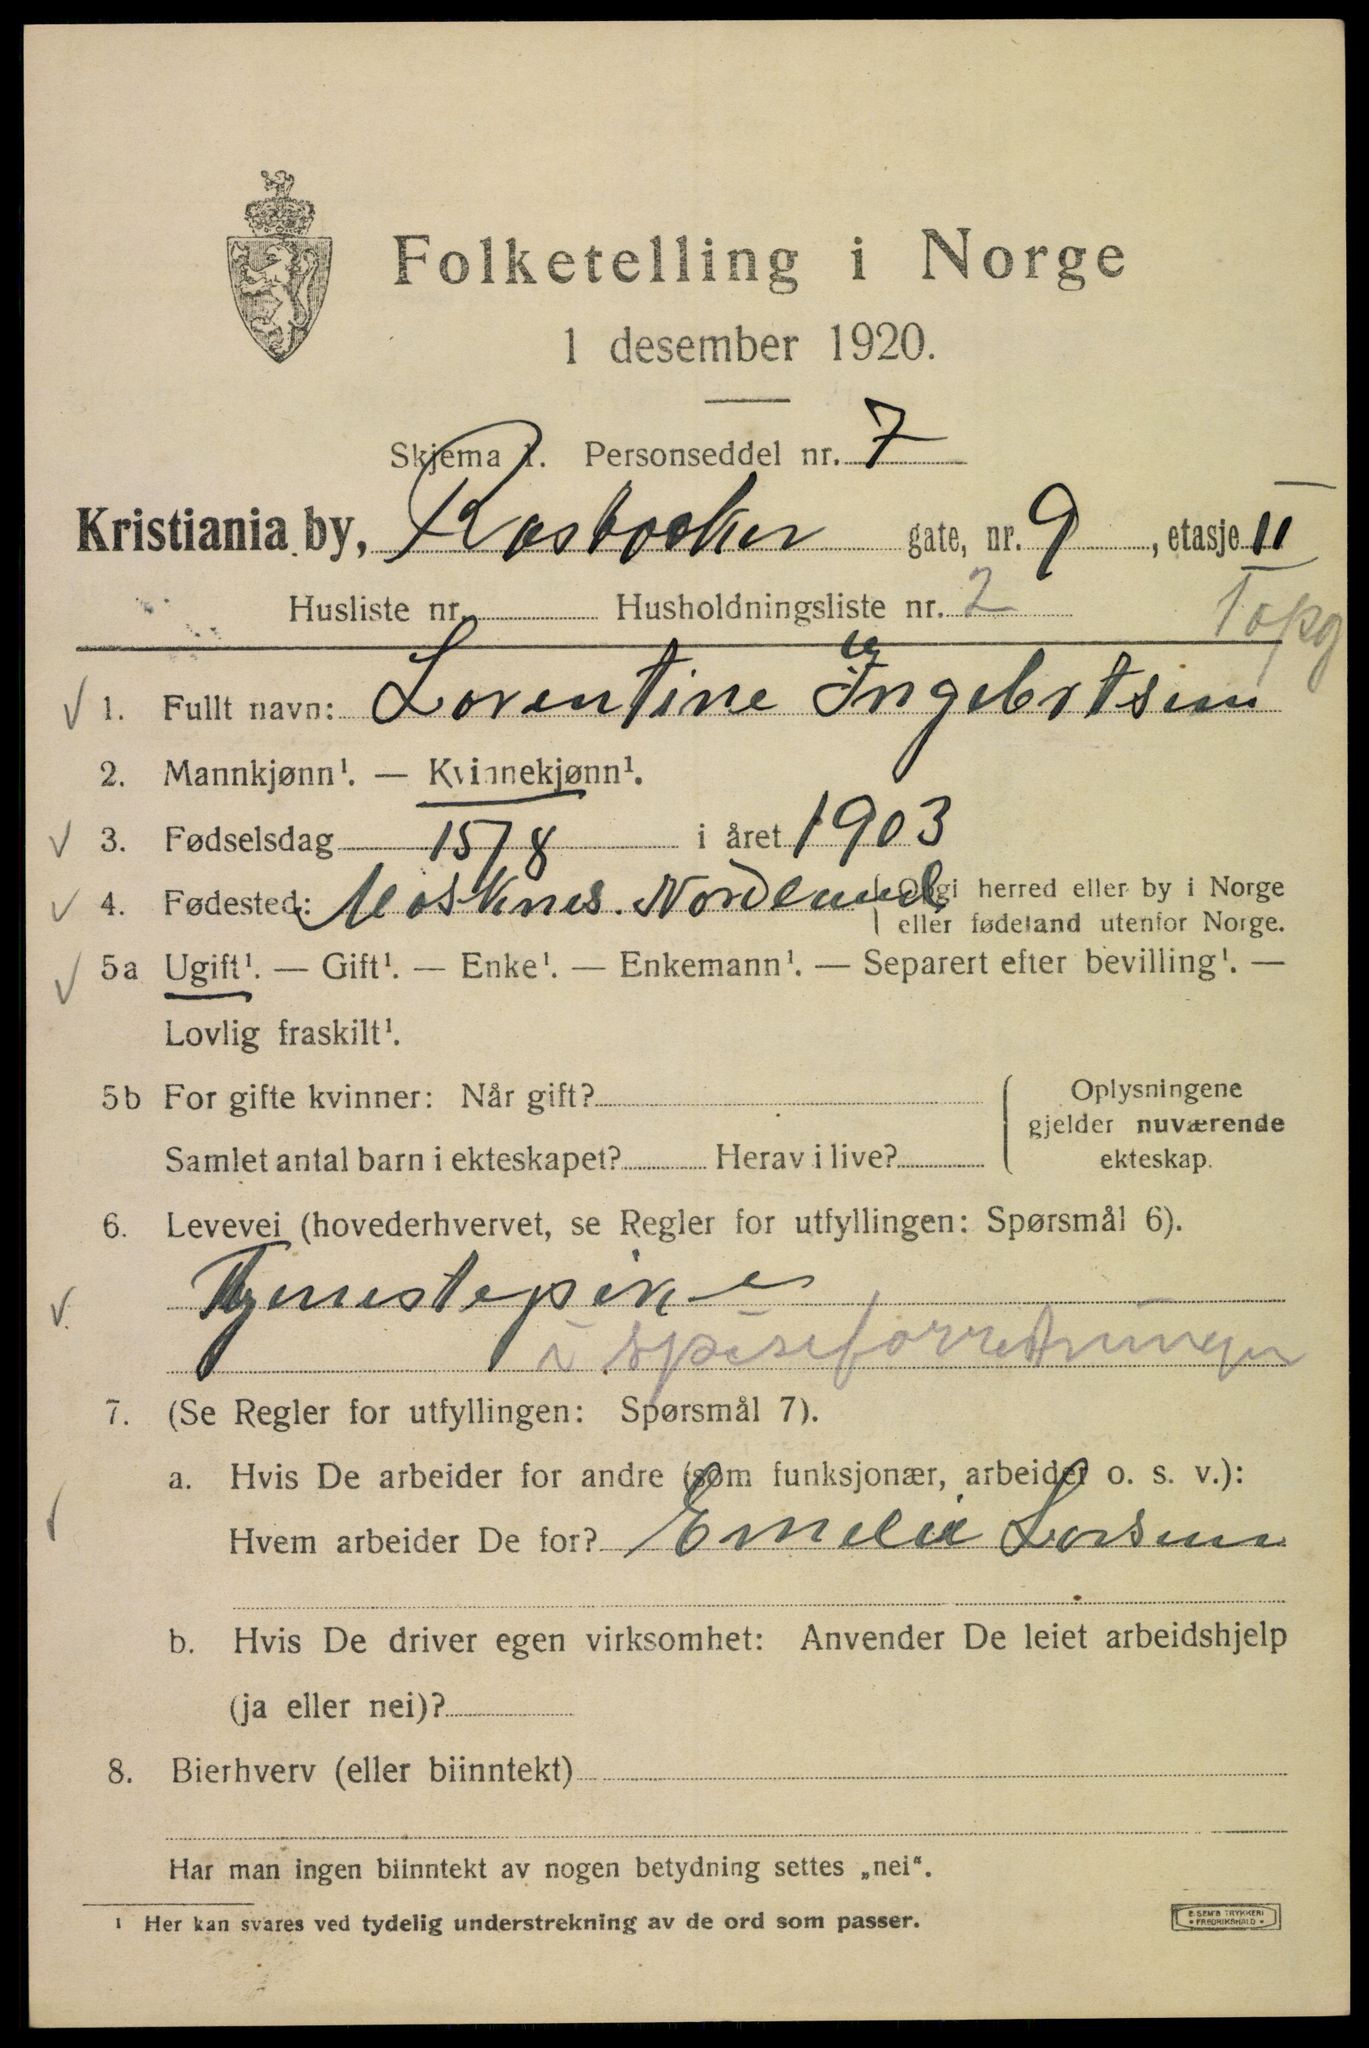 Folketelling i Norge
1 desember 1920.
Skjema 1. Personseddel nr. 7
Kristiania by, Rosbacker gate, nr. 9, etasje II
Husliste nr. Husholdningsliste nr. 2
1. Fullt navn: Lorentine Ingebrtsen
2. Mannkjønn¹. — Kvinnekjønn¹.
3. Fødselsdag 15/8 i året 1903
4. Fødested: Mosknes. Nordland ( Opgi herred eller by i Norge
eller fødeland utenfor Norge.
5a Ugift¹. — Gift¹. — Enke¹. — Enkemann¹. — Separert efter bevilling¹. —
Lovlig fraskilt¹.
5b For gifte kvinner: Når gift?
Samlet antal barn i ekteskapet? Herav i live?
Oplysningene
gjelder nuværende
ekteskap.
6. Levevei (hovederhvervet, se Regler for utfyllingen: Spørsmål 6).
Tjenestepike
i spiseforretningen
7. (Se Regler for utfyllingen: Spørsmål 7).
a. Hvis De arbeider for andre (som funksjonær, arbeider o. s. v.):
Hvem arbeider De for? Emelie Larsen
b. Hvis De driver egen virksomhet: Anvender De leiet arbeidshjelp
(ja eller nei)?
8. Bierhverv (eller biinntekt)
Har man ingen biinntekt av nogen betydning settes „nei“.
¹ Her kan svares ved tydelig understrekning av de ord som passer.
E. SEM'S TRYKKERI
• FREDRIKSHALD •